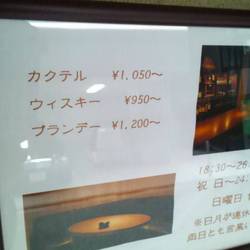 カクテル ¥1,050〜
ウィスキー ¥950〜
ブランデー ¥1,200〜
18:30〜26
祝 日〜24
日曜日
※日月が連休
両日とも営業